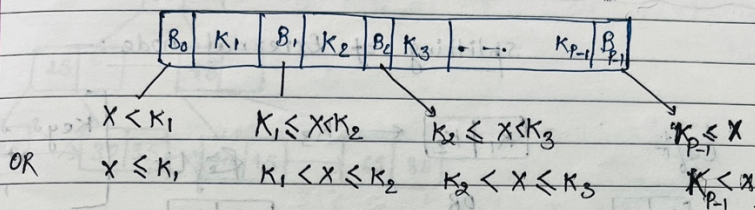 B₀ K₁ B₁ K₂ B₂ K₃ . -.. Kₚ₋₁ Bₚ₋₁
X < K₁ K₁ ≤ X < K₂ K₂ ≤ X < K₃ Kₚ₋₁ ≤ X
OR X ≤ K₁ K₁ < X ≤ K₂ K₂ < X ≤ K₃ Kₚ₋₁ < X